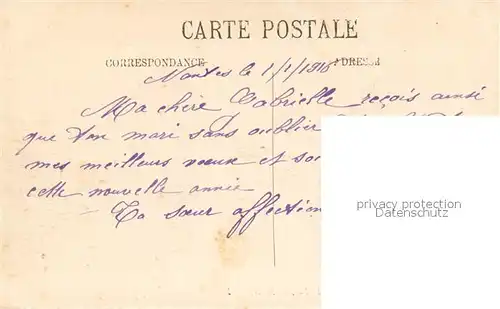 CARTE POSTALE
CORRESPONDANCE
Nantes le 1/1/1916
Ma chère Gabrielle reçois ainsi
que ton mari sans oublier
mes meilleurs vœux et
cette nouvelle année
Ta sœur affection
persönlicher
Datenschutz